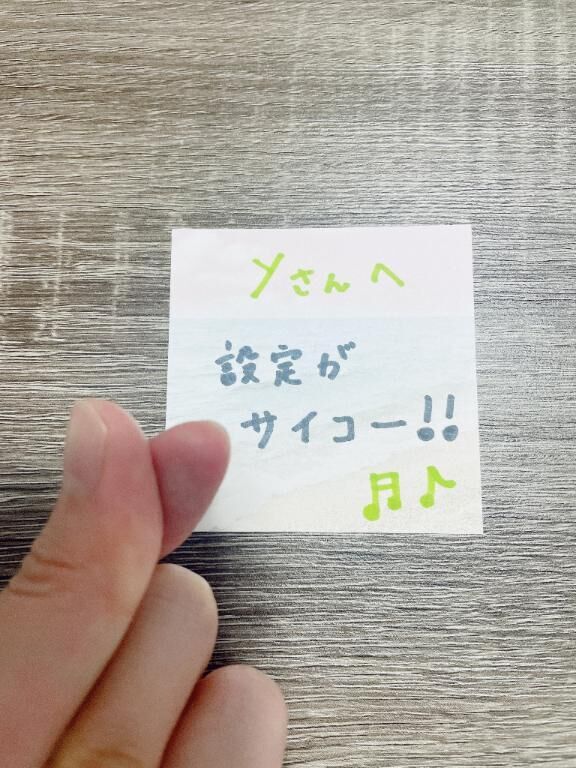 Yさんへ
設定が
サイコー!!
♬♪